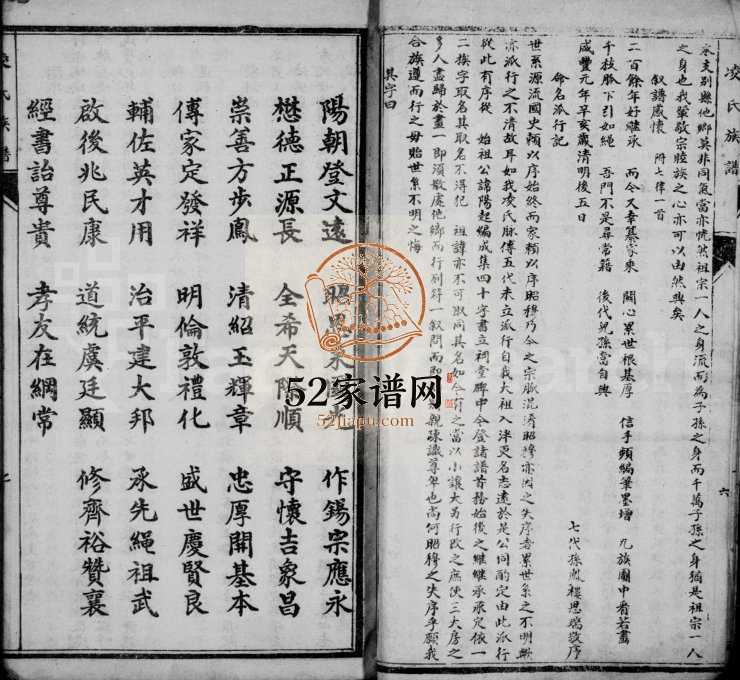 凌氏族譜
六
之身也我輩敬宗睦族之心亦可以油然興矣
叙譜感懷 附七律一首
二百餘年好繼承 而今又幸纂家乘 關心累世根基厚 信手頻編筆墨增 九族圖中看若畫
千枝脉下引如繩 吾門不是尋常籍 後代兒孫當自興
咸豐元年辛亥歲清明後五日
七代孫鳳樓思瑞敬序
命名派行記
世系源流國史賴以序始終而家賴以序昭穆乃今之宗脈混淆昭穆亦因之失序者累世系之不明歟
亦派行之不清故耳如我凌氏脉傳五代未立派行自我大祖入泮更名志遠於是公同酌定由此派行
從此有序從 始祖公諱陽起編成集四十字書立祠堂碑中今登諸譜首務始後之繼繼承承定依一
二族字取名其取名不得犯 祖諱亦不可取同其名如今有之當以小讓大另行改之庶使三大房之
多人盡歸於畫一即須散處他鄉而行列符一叙問而即 親疎識尊卑也尚何昭穆之失序乎願我
合族遵而行之毋貽世系不明之悔
其字曰
陽朝登文遠 作錫宗應永
懋德正源長 全希天 順 守懷吉象昌
崇善方步鳳 清紹玉輝章 忠厚開基本
傳家定發祥 明倫敦禮化 盛世慶賢良
輔佐英才用 治平建大邦 承先繩祖武
啟後兆民康 道統虞廷顯 修齊裕贊襄
經書詒尊貴 孝友在綱常
凌氏族譜
七
52家谱网
52jiapu.com